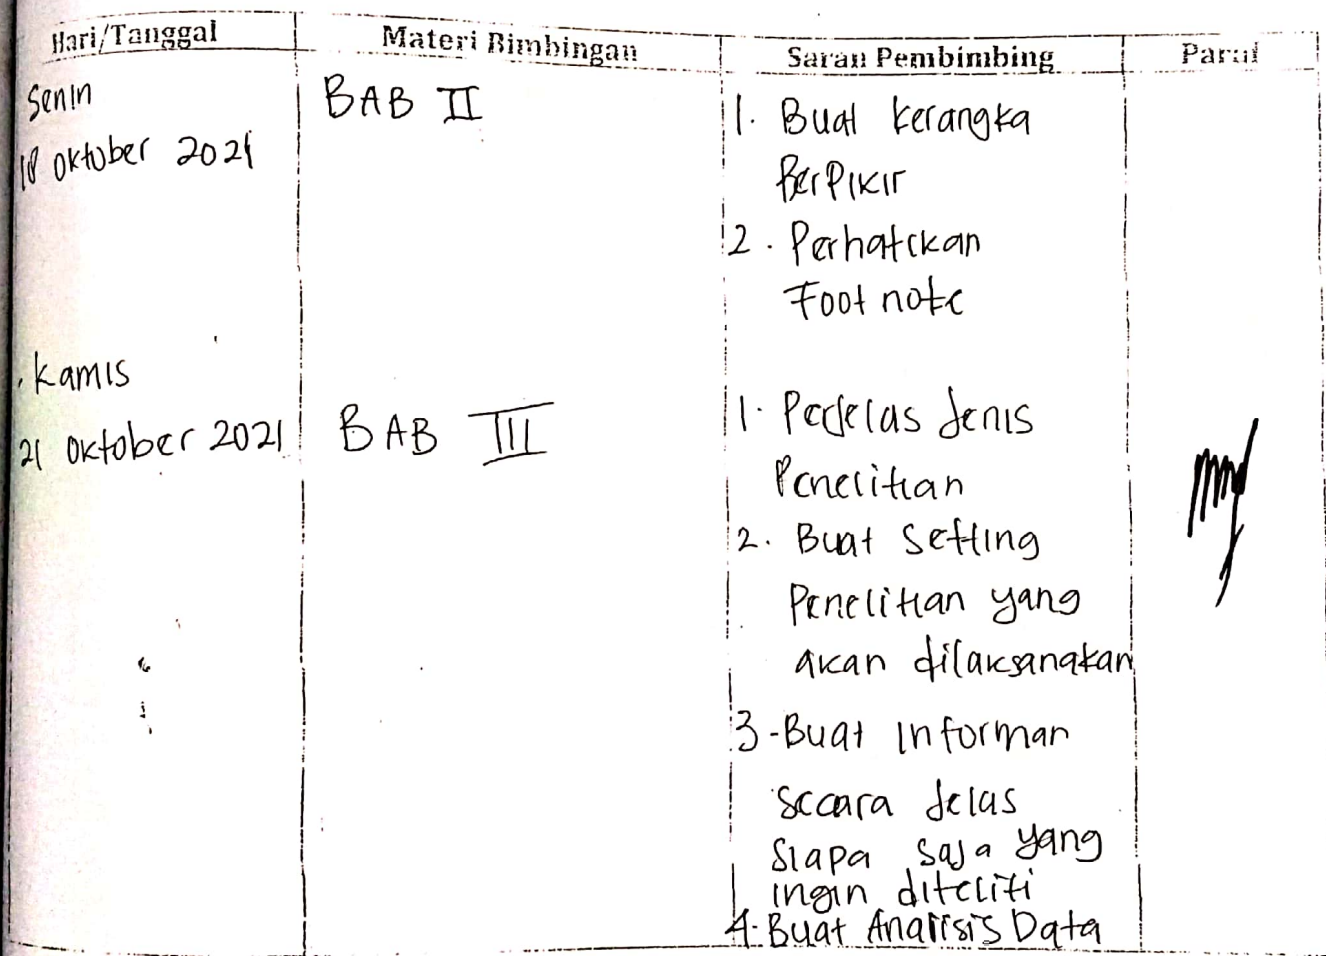 Hari/Tanggal
Materi Bimbingan
Saran Pembimbing
Paraf
Senin
18 Oktober 2021
BAB II
1. Buat kerangka
Berpikir
2. Perhatikan
Foot note
Kamis
21 Oktober 2021
BAB III
1. Perjelas Jenis
Penelitian
2. Buat Setting
Penelitian yang
akan dilaksanakan
3-Buat Informan
secara Jelas
siapa saja yang
ingin diteliti
4. Buat Analisis Data